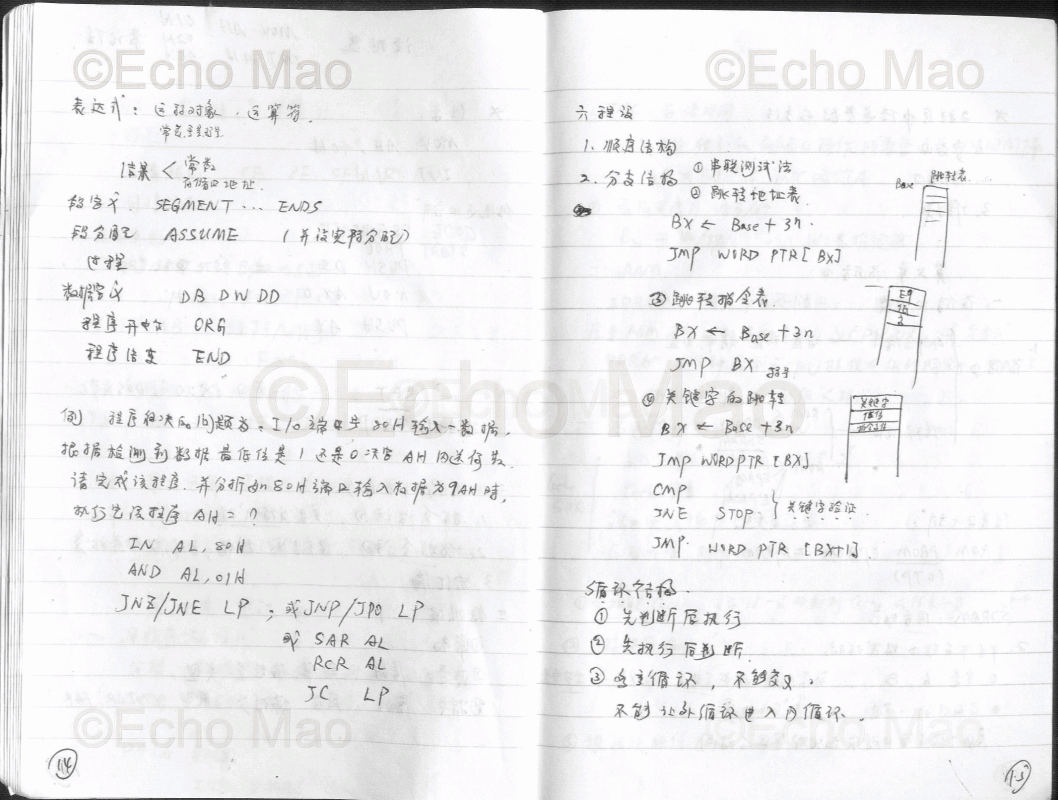 ©Echo Mao
表达式：运算对象、运算符.
常量
结果 < 常数
存储口地址.
段定义. SEGMENT ... ENDS
段分配 ASSUME
过程
数据定义 DB DW DD
程序开始 ORG
程序结束 END
©Echo Mao
例 程序解决的问题为：I/O端口号80H输入一数据，
根据检测到数据最低位是1还是0决定AH内送何数.
请完成该程序. 并分析如80H端口输入数据为9AH时，
执行完该程序AH=？
IN AL, 80H
AND AL, 01H
JNZ/JNE LP ; 或JNP/JPO LP
或 SAR AL
RCR AL
JC LP
©Echo Mao
114
©Echo Mao
六 程设
1. 顺序结构
2. 分支结构 ① 串联测试法
② 跳转地址表
Base 跳转表
BX ← Base + 3n.
JMP WORD PTR [BX]
③ 跳转指令表.
BX ← Base + 3n
JMP BX
④ 关键字的跳转
BX ← Base + 3n
关键字
JMP WORD PTR [BX]
CMP
JNE STOP } 关键字验证
JMP. WORD PTR [BX+1]
循环结构.
① 先判断后执行
② 先执行后判断
③ 多重循环，不能交叉.
不能让外循环进入内循环.
©Echo Mao